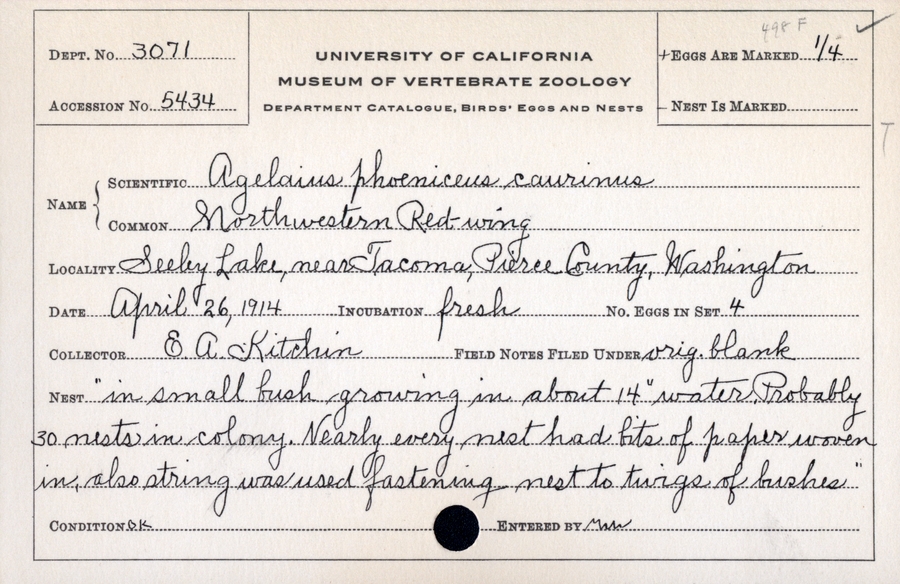 498 F
DEPT. No. 3071
UNIVERSITY OF CALIFORNIA
+EGGS ARE MARKED 1/4
MUSEUM OF VERTEBRATE ZOOLOGY
ACCESSION No. 5434
DEPARTMENT CATALOGUE, BIRDS' EGGS AND NESTS
– NEST IS MARKED
T
NAME { SCIENTIFIC Agelaius phoeniceus caurinus
COMMON Northwestern Red-wing
LOCALITY Seeley Lake, near Tacoma, Pierce County, Washington
DATE April 26, 1914 INCUBATION fresh No. EGGS IN SET 4
COLLECTOR E. A. Kitchin FIELD NOTES FILED UNDER orig. blank
NEST "in small bush growing in about 14" water. Probably
30 nests in colony. Nearly every nest had bits of paper woven
in, also string was used fastening nest to twigs of bushes"
CONDITION OK ENTERED BY